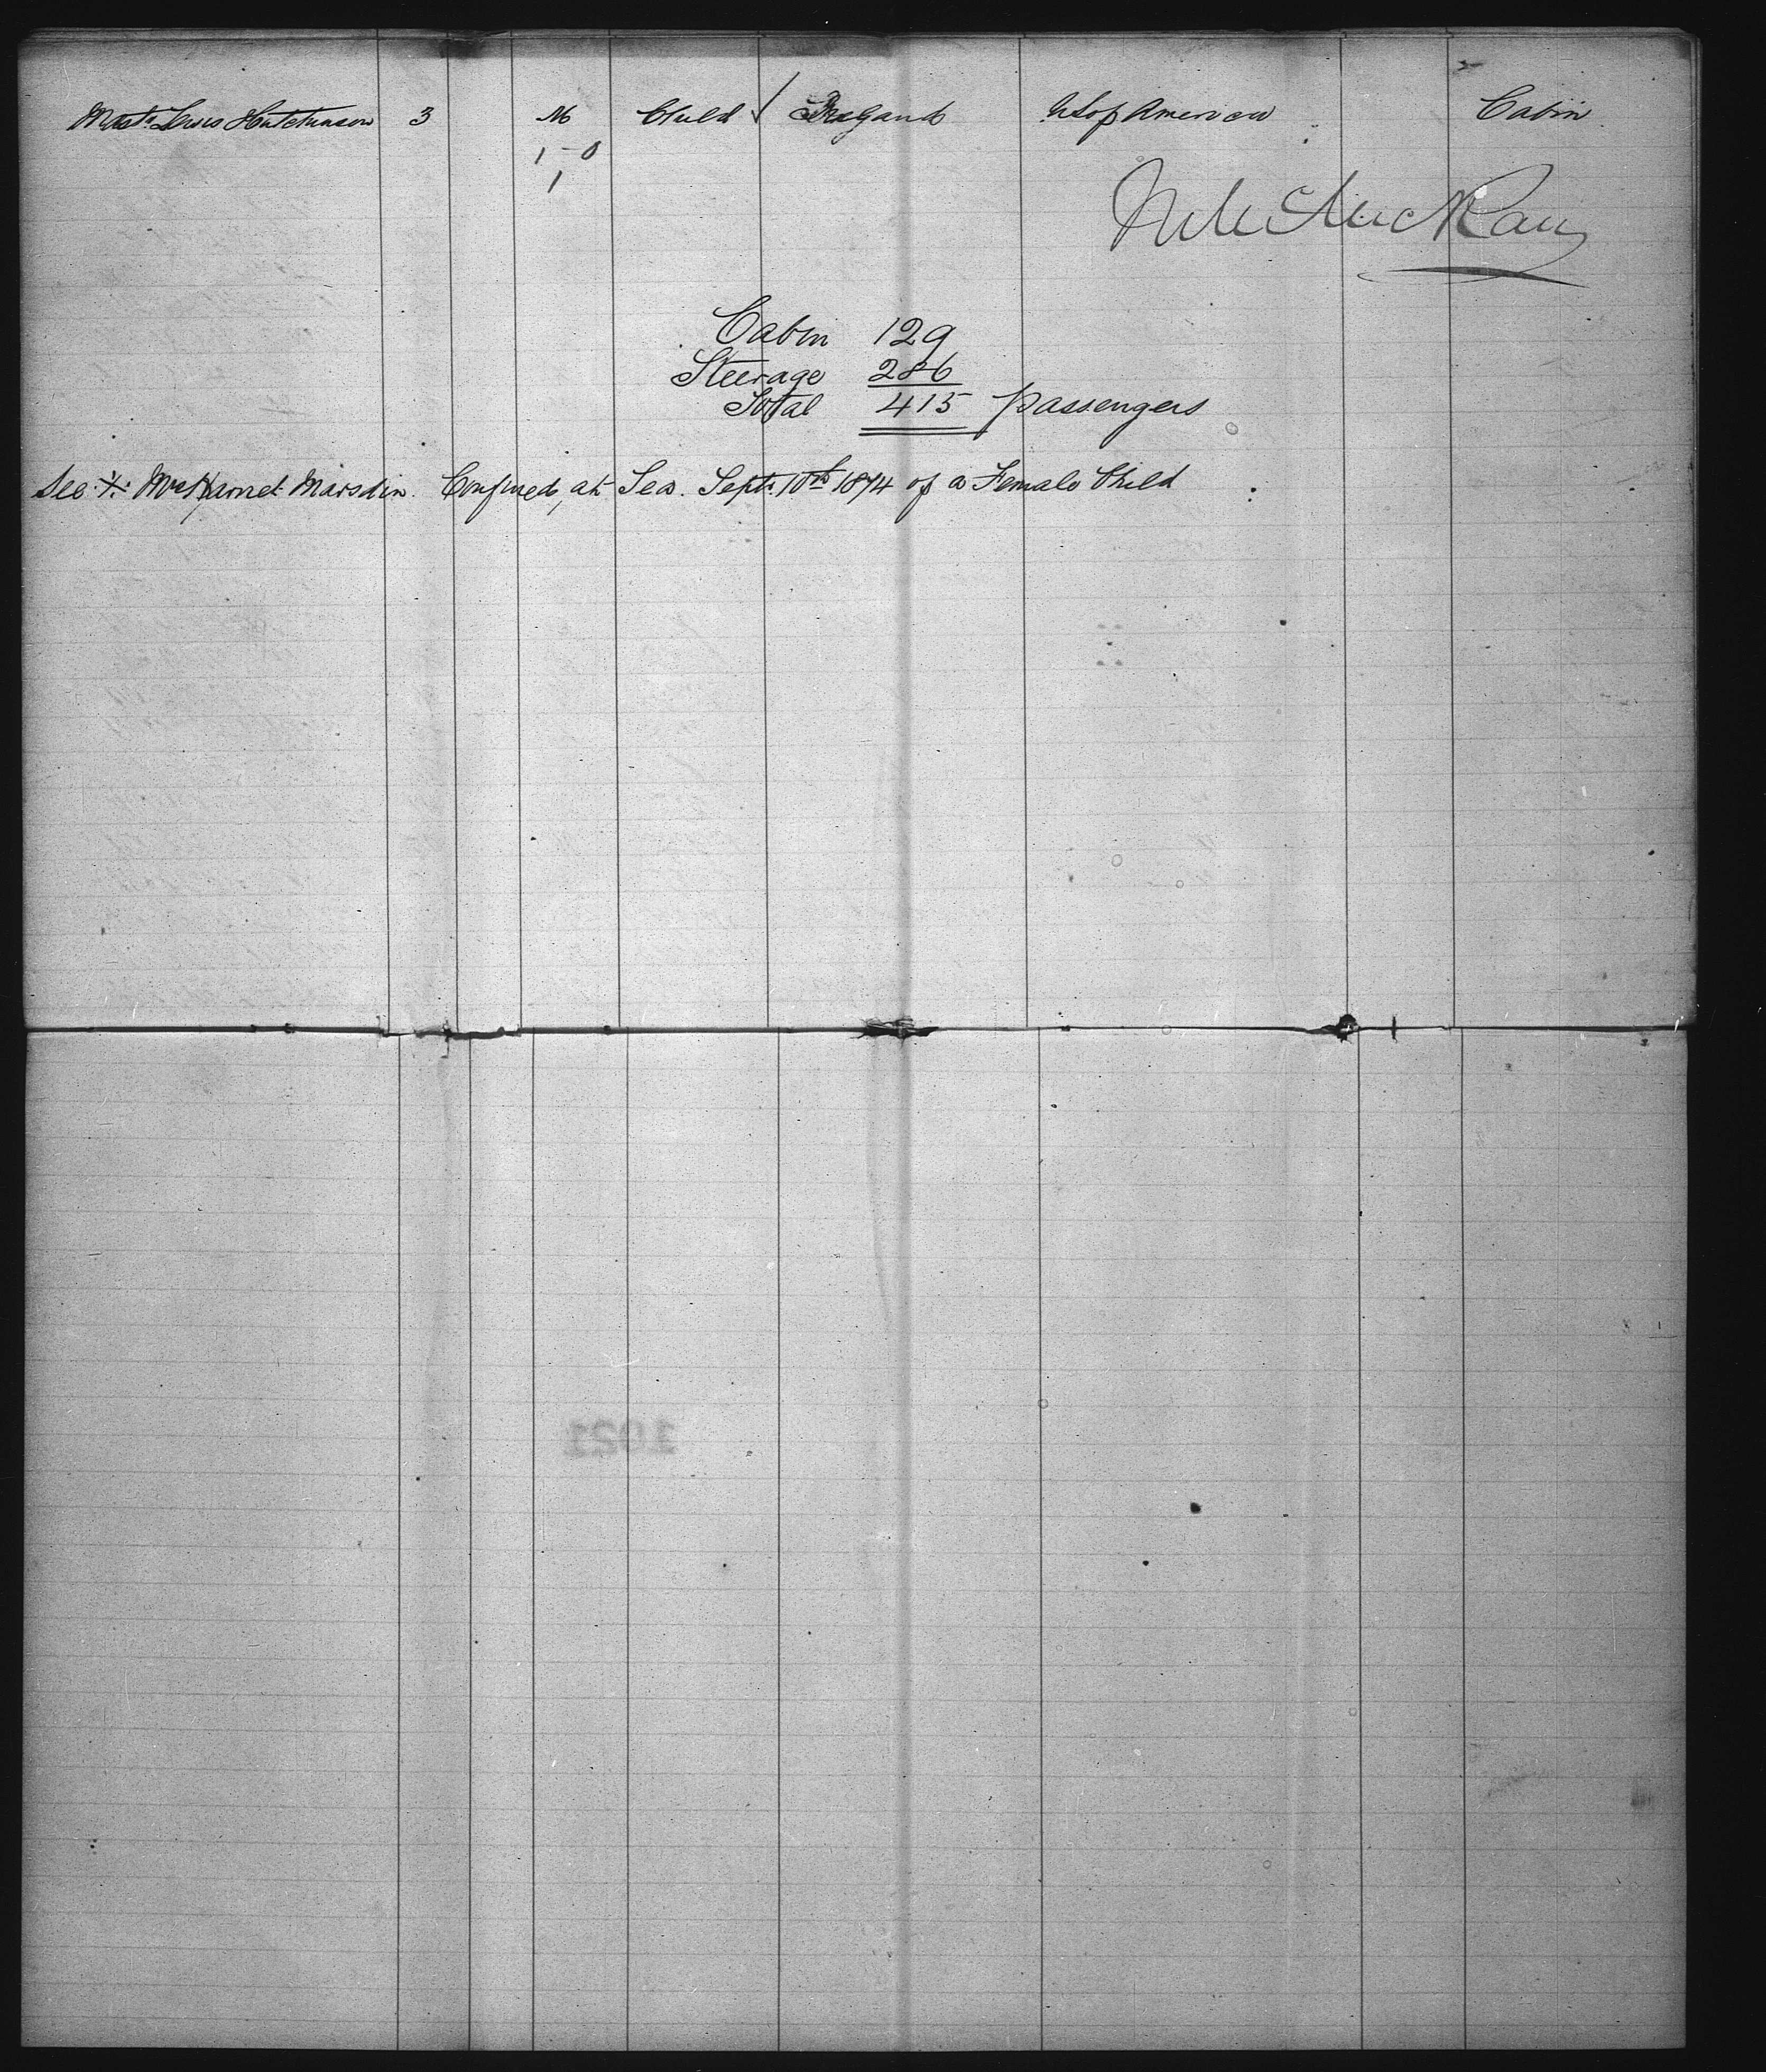 Mast. Lewis Hutchinson 3 M Child / England U S of America Cabin
1 - 0
1
Cabin 129
Steerage 286
Total 415 passengers
See Mrs Harriet Marsdin. Confined, at Sea. Sept. 10th 1874 of a Female Child
1021